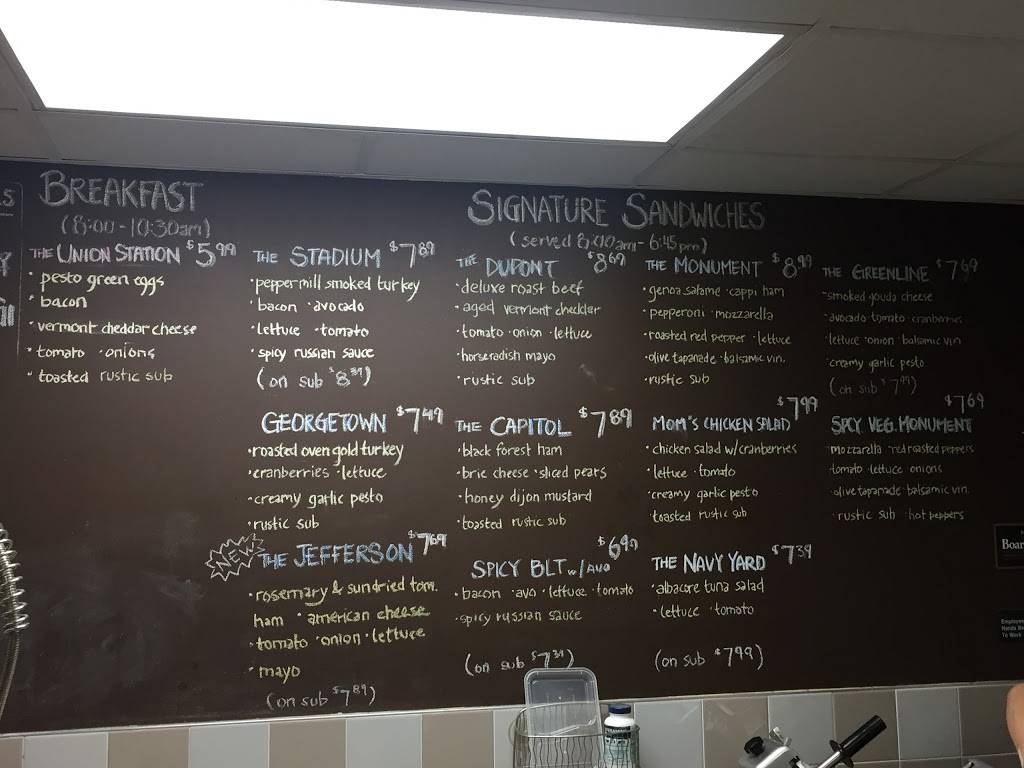 BREAKFAST
(8:00-10:30am)
THE UNION STATION $5.99
• pesto green eggs
• bacon
• vermont cheddar cheese
• tomato • onions
• toasted rustic sub
SIGNATURE SANDWICHES
(served 8:00am-6:45pm)
THE STADIUM $7.89
• peppermill smoked turkey
• bacon • avocado
• lettuce • tomato
• spicy russian sauce
(on sub $8.39)
THE DUPONT $8.69
• deluxe roast beef
• aged vermont cheddar
• tomato • onion • lettuce
• horseradish mayo
• rustic sub
THE MONUMENT $8.99
• genoa salame • cappi ham
• pepperoni • mozzarella
• roasted red pepper • lettuce
• olive tapanade • balsamic vin.
• rustic sub
THE GREENLINE $7.69
• smoked gouda cheese
• avocado tomato • cranberries
• lettuce • onion • balsamic vin
creamy garlic pesto
(on sub $7.99)
GEORGETOWN $7.49
• roasted oven gold turkey
• cranberries • lettuce
• creamy garlic pesto
• rustic sub
THE CAPITOL $7.89
• black forest ham
• brie cheese • sliced pears
• honey dijon mustard
• toasted rustic sub
MOM'S CHICKEN SALAD $7.99
• chicken salad w/cranberries
• lettuce • tomato
• creamy garlic pesto
toasted rustic sub
SPICY VEG. MONUMENT $7.69
mozzarella red roasted peppers
tomato lettuce onions
• olive tapanade • balsamic vin.
• rustic sub • hot peppers
NEW
THE JEFFERSON $7.69
• rosemary & sundried tom.
ham • american cheese
• tomato • onion • lettuce
• mayo
(on sub $7.89)
SPICY BLT w/AVO $6.99
• bacon • avo • lettuce • tomato
• spicy russian sauce
(on sub $7.39)
THE NAVY YARD $7.39
• albacore tuna salad
• lettuce • tomato
(on sub $7.99)
Boar
Employee
To Work